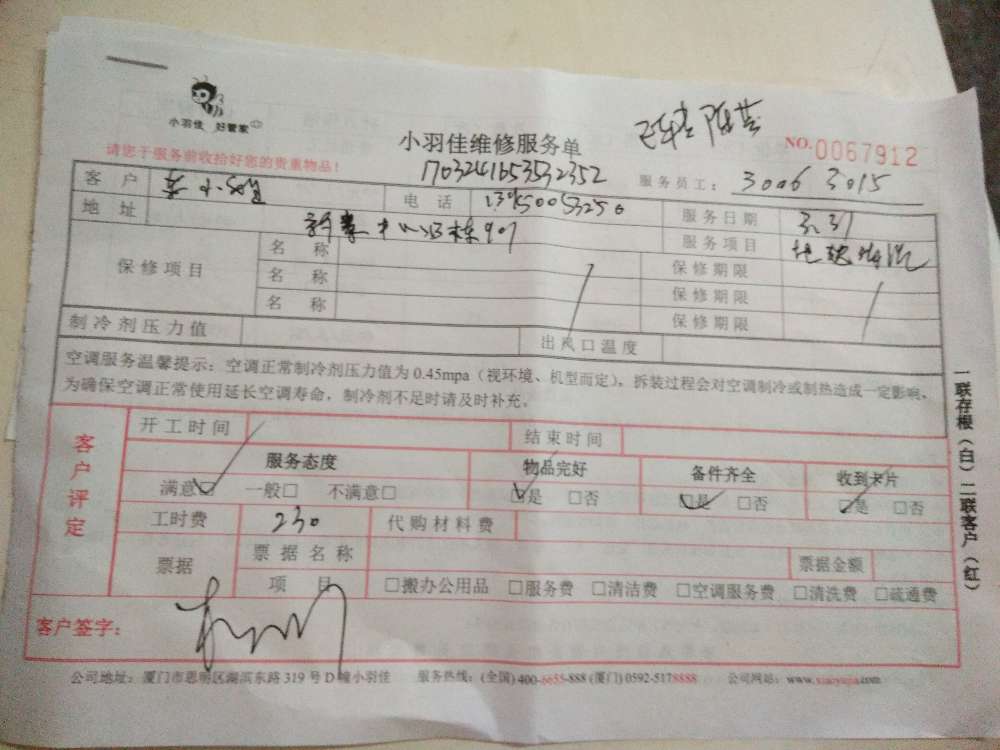 小羽佳 好管家
小羽佳维修服务单
NO.0067912
请您于服务前收拾好您的贵重物品！
17032441653532352
服务员工： 3006 3015
客户 电话 13950053250 服务日期 3.31
地址 中心 栋907 服务项目
保修项目 名称 保修期限
名称 保修期限
名称 保修期限
制冷剂压力值 出风口温度
空调服务温馨提示：空调正常制冷剂压力值为0.45mpa（视环境、机型而定），拆装过程会对空调制冷或制热造成一定影响，
为确保空调正常使用延长空调寿命，制冷剂不足时请及时补充。
客户评定
开工时间 结束时间
服务态度 物品完好 备件齐全 收到卡片
满意□ 一般□ 不满意□ □是 □否 □是 □否 □是 □否
工时费 230 代购材料费
票据 票据名称 票据金额
项目 □搬办公用品 □服务费 □清洁费 □空调服务费 □清洗费 □疏通费
客户签字：
公司地址：厦门市思明区湖滨东路319号D幢小羽佳 服务热线：(全国)400-6655-888 (厦门)0592-5178888 公司网站：www.xiaoyujia.com
一联存根（白）二联客户（红）